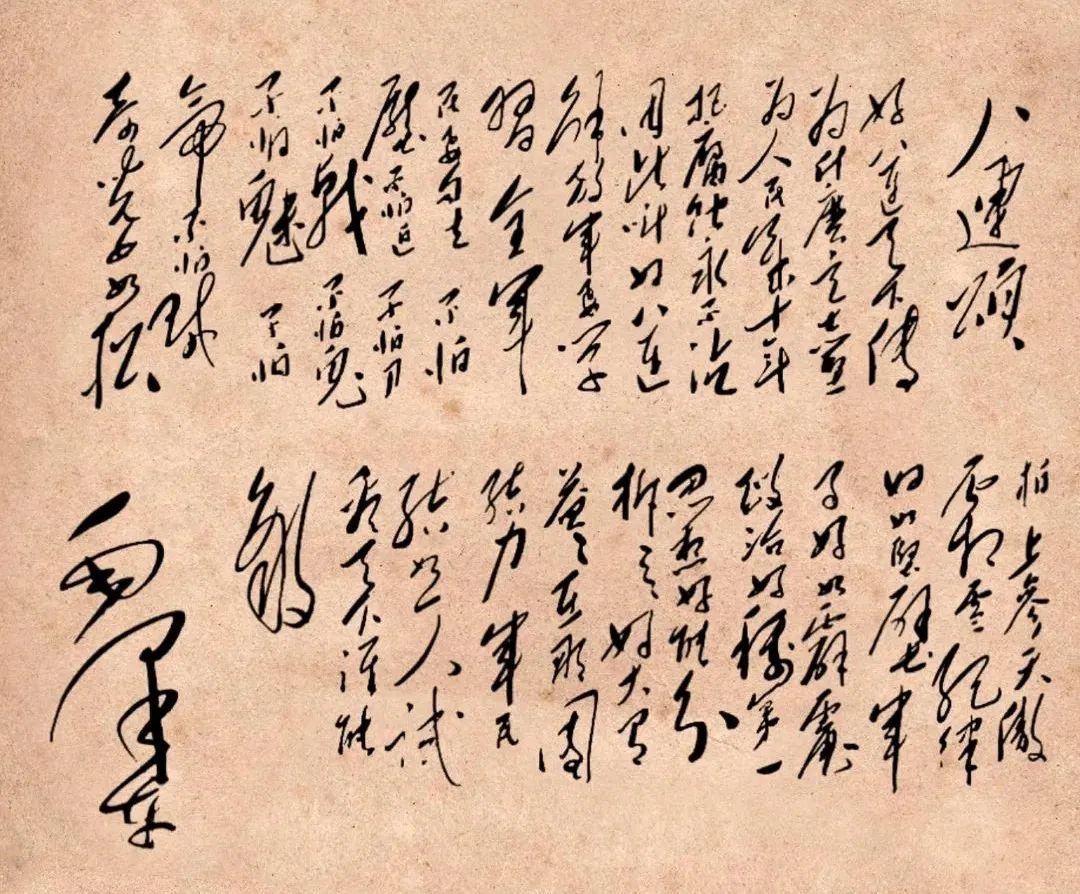 八連頌
好八連天下傳
为什麽意志堅
为人民幾十年
拒腐蚀永不沾
因此叫好八連
解放军要学
習全军
民要自立不怕
壓不怕迫不怕刀
不怕戟不怕鬼
不怕魅不怕
帝不怕贼
奇儿女如松
柏上参天傲
霜雪紀律
好如堅壁军
事好如霹靂
政治好称第一
思想好能分
析好大有
益益在哪团
结力军民
结如一人試
看天下谁能
敵
毛泽东